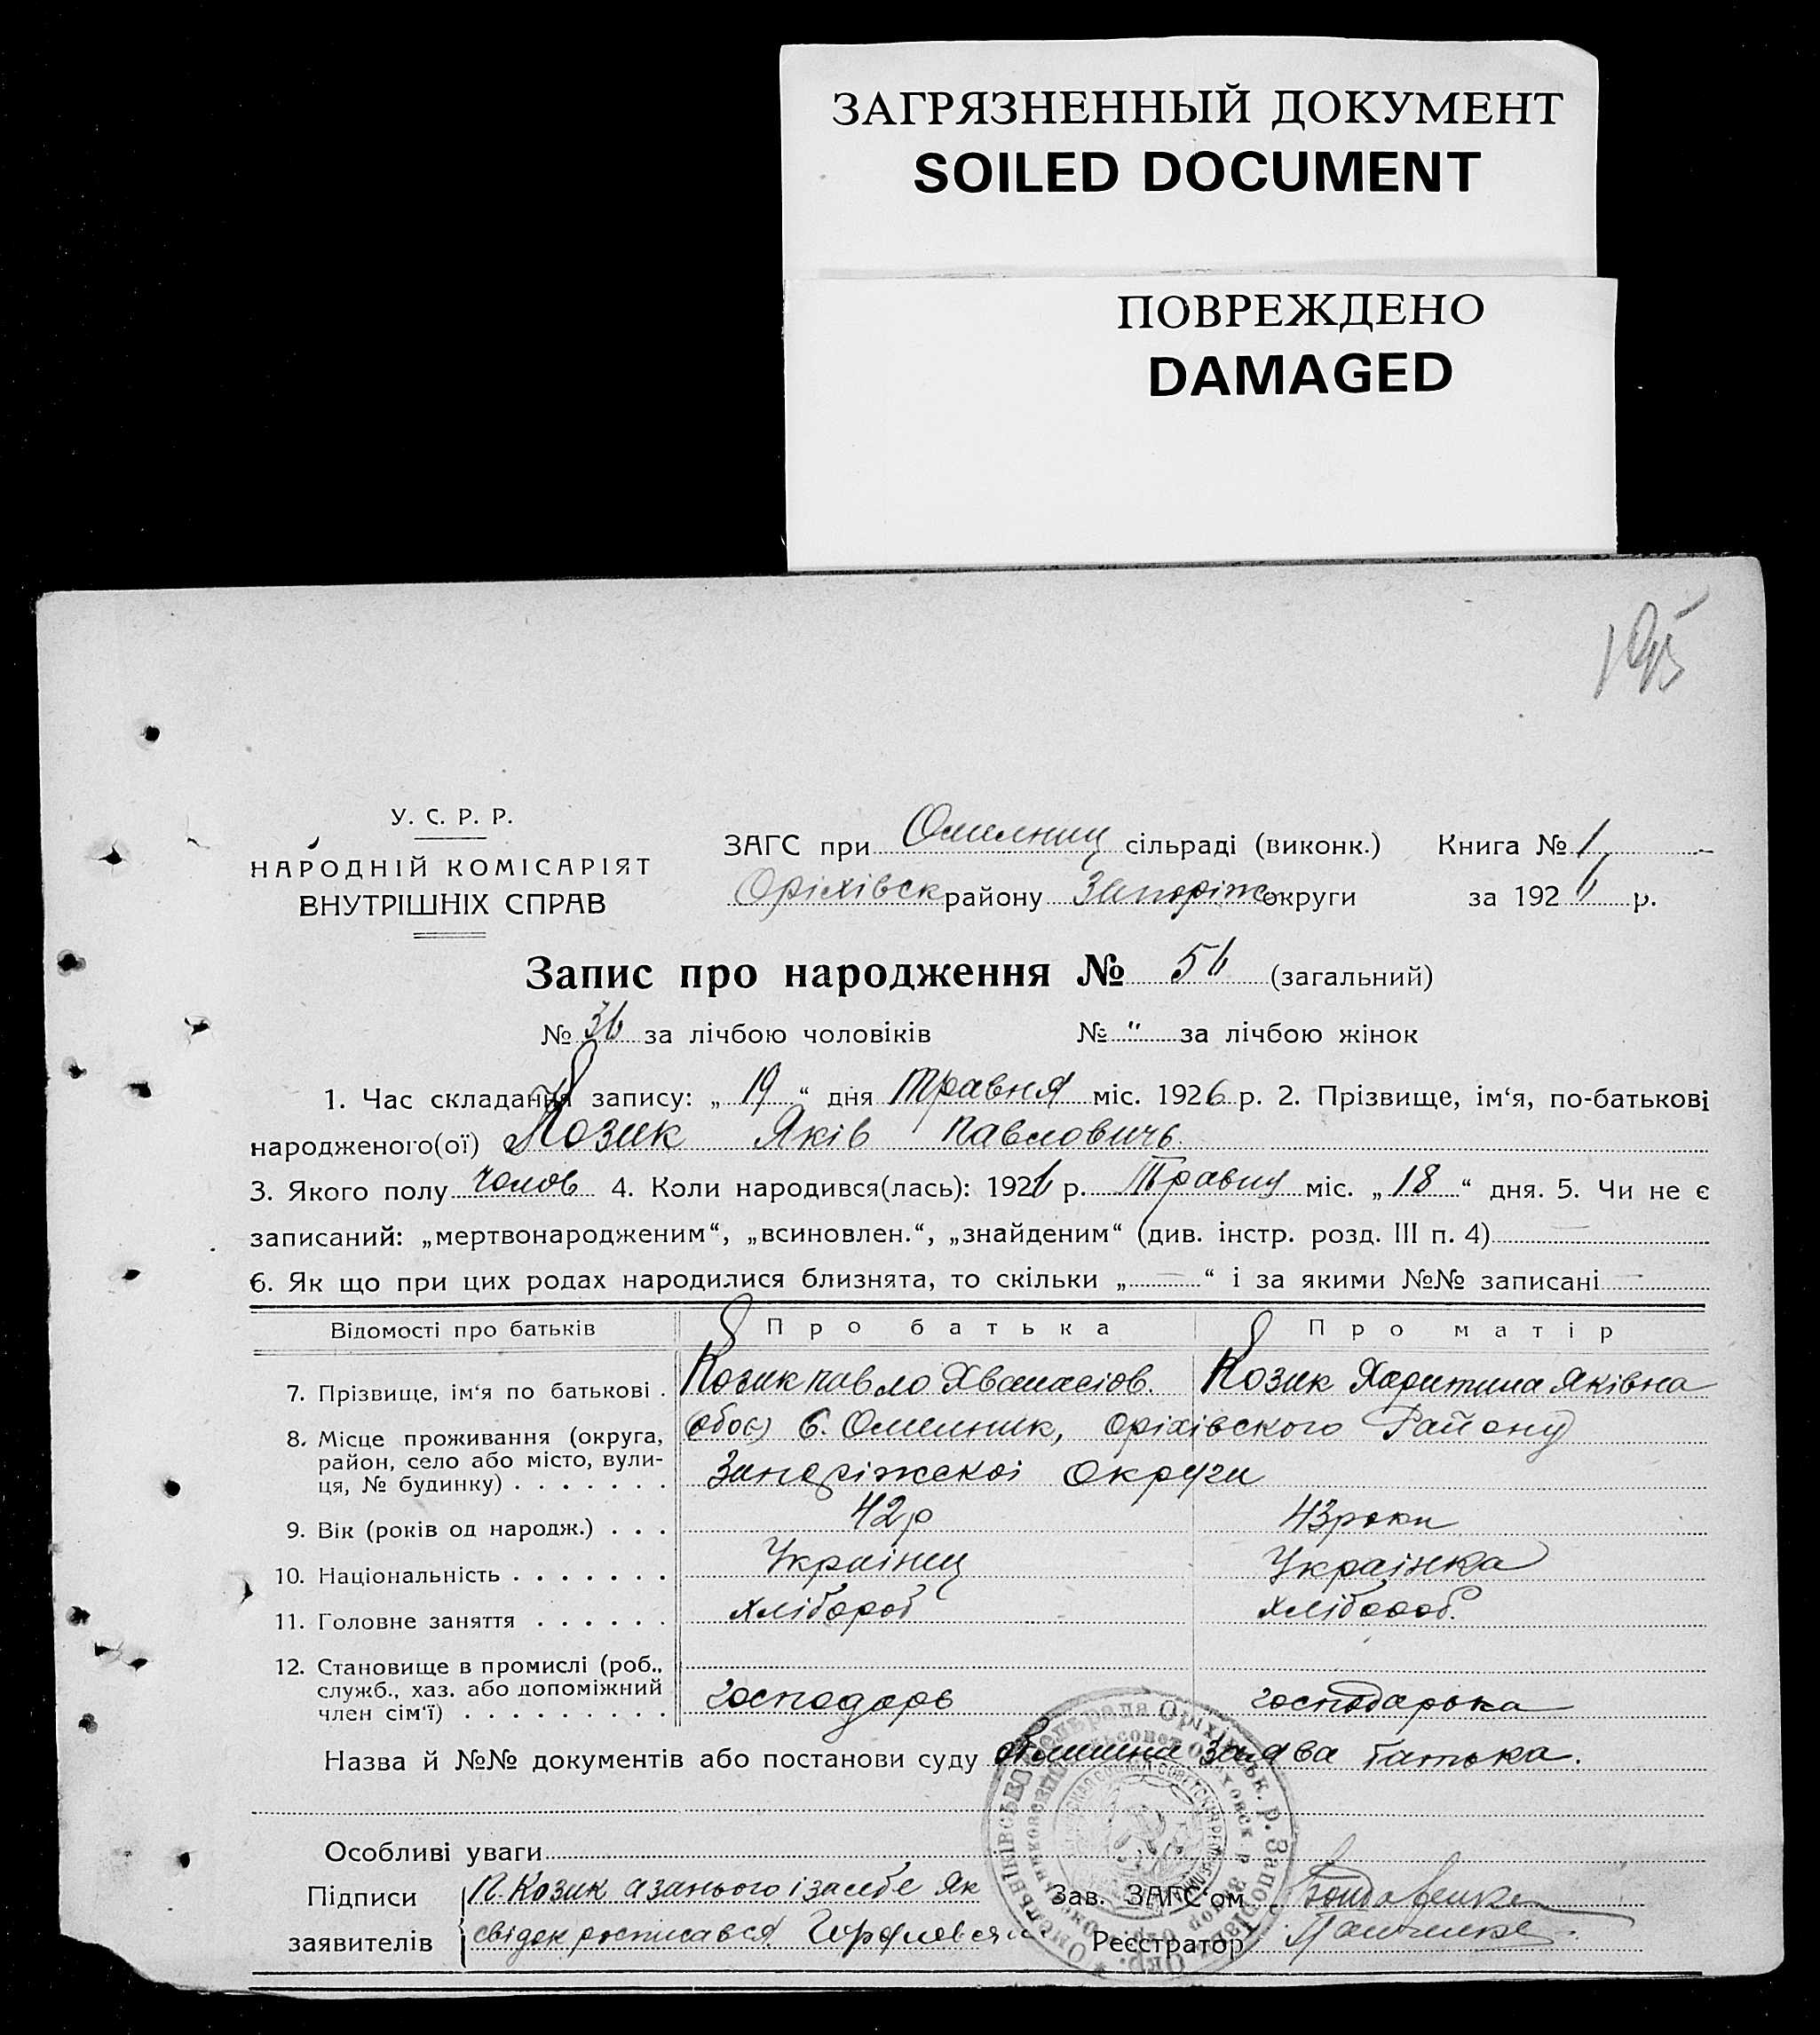 ЗАГРЯЗНЕННЫЙ ДОКУМЕНТ
SOILED DOCUMENT
ПОВРЕЖДЕНО
DAMAGED
195
У. С. Р. Р.
НАРОДНІЙ КОМІСАРІЯТ
ВНУТРІШНІХ СПРАВ
ЗАГС при Омелниц сільраді (виконк.) Книга № 1
Оріхівск району Запоріж округи за 1926 р.
Запис про народження № 56 (загальний)
№ 36 за лічбою чоловіків № " за лічбою жінок
1. Час складання запису: „ 19 “ дня Травня міс. 1926 р. 2. Прізвище, ім‘я, по-батькові
народженого(ої) Козик Яків Павловичь
3. Якого полу чолов 4. Коли народився(лась): 1926 р. Травня міс. „ 18 “ дня. 5. Чи не є
записаний: „мертвонародженим“, „всиновлен.“, „знайденим“ (див. інстр. розд. III п. 4) —
6. Як що при цих родах народилися близнята, то скільки „ — “ і за якими №№ записані —
Відомості про батьків Про батька Про матір
7. Прізвище, ім‘я по батькові . Козик павло Хванасіов. Козик Харитина Яківна
8. Місце проживання (округа, (обоє) с. Омелник, Оріхівского Району
район, село або місто, вули-
ця, № будинку) . . . . . . . Запоріжскоі Округи
9. Вік (років од народж.) . . . 42р 43роки
10. Національність . . . . . . . Украінец Украінка
11. Головне заняття . . . . . . хлібороб хлібороб.
12. Становище в промислі (роб.,
служб., хаз. або допоміжний
член сім‘ї) . . . . . . . . . господарь господарька
Назва й №№ документів або постанови суду заява батька.
Особливі уваги
Підписи П. Козик а занього і засебе як Зав. ЗАГС‘ом
заявителів свідок росписався Реєстратор